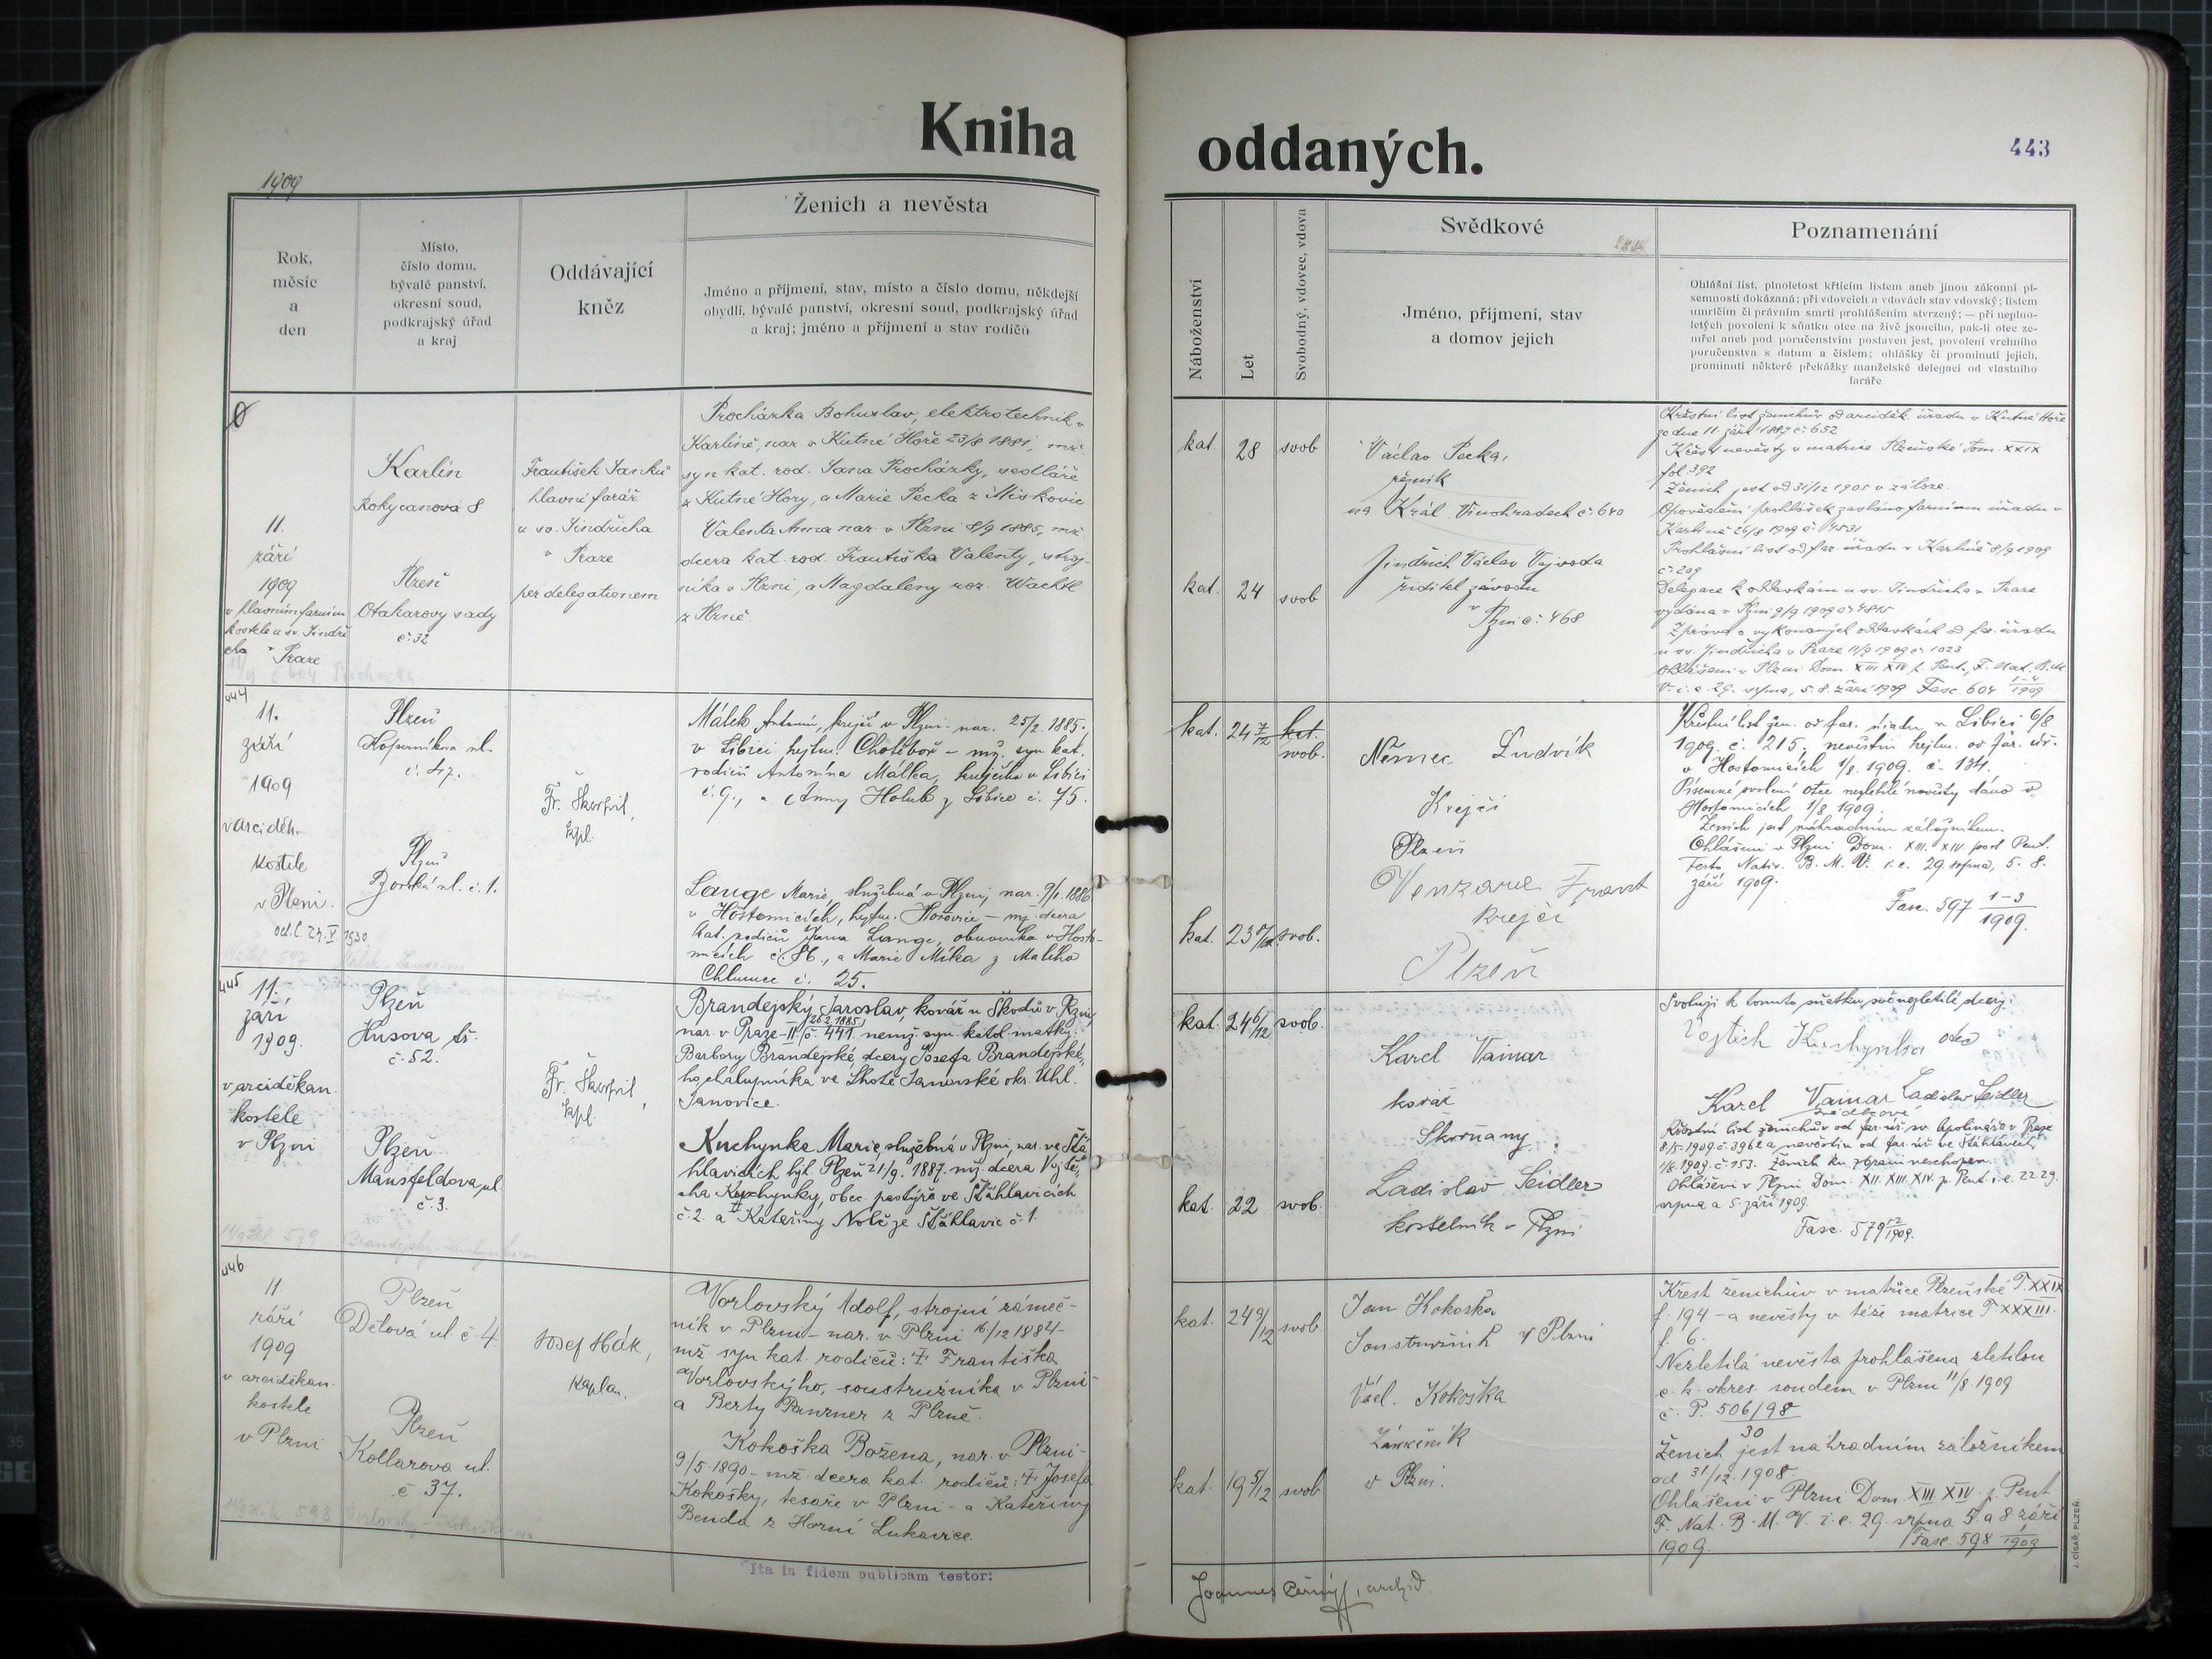 Kniha
oddaných.
443
1909
Rok,
měsíc
a
den
Místo,
číslo domu,
bývalé panství,
okresní soud,
podkrajský úřad
a kraj
Oddávající
kněz
Ženich a nevěsta
Jméno a příjmení, stav, místo a číslo domu, někdejší
obydlí, bývalé panství, okresní soud, podkrajský úřad
a kraj; jméno a příjmení a stav rodičů
Náboženství
Let
Svobodný, vdovec, vdova
Svědkové
Jméno, příjmení, stav
a domov jejich
Poznamenání
Ohlášní list, plnoletost křticím listem aneb jinou zákonní pí-
semností dokázaná; při vdovcích a vdovách stav vdovský; listem
umrlčím či právním smrti prohlášením stvrzený; — při neplno-
letých povolení k sňatku otce na živě jsoucího, pak-li otec ze-
mřel aneb pod poručenstvím postaven jest, povolení vrchního
poručenstva s datum a číslem; ohlášky či prominutí jejich,
prominutí některé překážky manželské delegací od vlastního
faráře
0
11.
září
1909
v hlavním farním
kostele u sv. Jindři
cha v Praze
Karlín
Rokycanova 8
Plzeň
Otakarovy sady
č. 32
František Janků
hlavní farář
u sv. Jindřicha
v Praze
per delegationem
Procházka Bohuslav, elektrotechnik v
Karlíně, nar. v Kutné Hoře 23/8 1881, mž.
syn kat. rod. Jana Procházky, sedláře
z Kutné Hory, a Marie Pecka z Miskovic
Valenta Anna nar. v Plzni 8/9 1885, mž.
dcera kat. rod. Františka Valenty, stroj-
níka v Plzni, a Magdaleny roz. Wachtl
z Plzně.
kat. 28 svob
kat. 24 svob
Václav Pecka,
řezník
na Král. Vinohradech č. 640
Jindřich Václav Vejvoda
řiditel závodu
v
Plzni č. 468
Křestní list ženichův od arciděk. úřadu v Kutné Hoře
ze dne 11. září 1887 č. 652
Křest nevěsty v matrice Plzeňské Tom. XXIX
fol. 392
Ženich jest od 31/12 1905 v záloze.
Opovědění prohlášek zasláno farnímu úřadu v
Karlíně 26/8 1909 č. 4531
Prohlášní list od far. úřadu v Karlíně 8/9 1909
č. 209
Delegace k oddavkám u sv. Jindřicha v Praze
vydána v Plzni 9/9 1909 č. 4815
Zpráva o vykonaných oddavkách od far. úřadu
u sv. Jindřicha v Praze 11/9 1909 č. 1023
Ohlášeni v Plzni Dom. XIII. XIV p. Pent., F. Nat. B. M.
V. i. e. 29. srpna, 5. 8. září 1909 Fasc. 604 1-4/1909
444
11.
září
1909
v arciděk.
kostele
v Plzni.
odl. 27. V. 1930.
Plzeň
Koperníkova ul.
Plzeň
č. 1.
Fr. Škorpil,
kpl.
Málek Antonín, krejčí v Plzni nar. 25/2. 1885.
v Libici hejtm. Chotěboř – mž. syn kat.
rodičů Antonína Málka, krejčího v Libici
č. 9., a Anny Holub z Libice č. 75.
Lange Marie, služebná v Plzni, nar. 9/1. 1886
v Hostomicích, hejtm. Hořovice – mž. dcera
kat. rodičů Jana Lange, obuvníka v Hosto-
micích č. 86., a Marie Míka z Malého
Chlumce č. 25.
kat. 24 7/12 kat.
svob.
kat. 23 8/12 svob.
Němec Ludvík
Krejčí
Plzeň
Frant
krejčí
Plzeň
Křestní list žen. od far. úřadu v Libici 6/8
1909. č. 215; nevěstin hejtm. od far. úř.
v Hostomicích 1/8. 1909. č. 134.
Písemné svolení otce nezletilé nevěsty dáno v
Hostomicích 1/8 1909.
Ženich jest náhradním záložníkem.
Ohlášeni v Plzni Dom. XIII. XIV. post Pent.
Festo Nativ. B. M. V. i. e. 29. srpna, 5. 8.
září 1909.
Fasc. 597 1-3/1909.
445
11.
září
1909.
v arciděkan.
kostele
v Plzni
Plzeň
Husova tř.
č. 52.
Plzeň
Mansfeldova ul
č. 3.
Fr. Škorpil,
kpl.
Brandejský Jaroslav, kovář u Škodů v Plzni,
nar. v Praze-II č. 441 26.2.1885 nemž. syn katol. matky
Barbory Brandejské, dcery Josefa Brandejské-
ho, chalupníka ve Lhotě Janovské okr. Uhl.
Janovice.
Kuchynka Marie, služebná v Plzni, nar. ve Šťá-
hlavicích hejt. Plzeň 21/9. 1887. mž. dcera Vojtě-
cha Kuchynky, obec. pastýře ve Šťáhlavicích
č. 2. a Kateřiny Nolč ze Šťáhlavic č. 1.
kat. 24 6/12 svob.
kat. 22 svob.
Karel Vainar
kovář
Skvrňany.
Ladislav Seidler
kostelník v Plzni
Svoluji k tomuto sňatku své nezletilé dcery:
Vojtěch Kuchynka otec
Karel Vainar Ladislav Seidler
svědkové
Křestní list ženichův od far. úř. sv. Apolináře v Praze
8/5. 1909. č. 3962 a nevěstin od far. úř. ve Šťáhlavech
1/8. 1909. č. 153. Ženich ku zbrani neschopen.
Ohlášeni v Plzni Dom. XII. XIII. XIV. p. Pent. i. e. 22. 29.
srpna a 5. září 1909.
Fasc. 579 1-2/1909.
446
11.
září
1909
v arciděkan.
kostele
v Plzni
Plzeň
Dělová ul č 4.
Plzeň
Kollarova ul.
č 37.
Josef Hák,
kaplan.
Vorlovský Adolf, strojní zámeč-
ník v Plzni – nar. v Plzni 16/12 1884 –
mž. syn kat. rodičů: † Františka
Vorlovskýho, soustružníka v Plzni –
a Berty Panzner z Plzně.
Kokoška Božena, nar. v Plzni –
9/5 1890 – mž. dcera kat. rodičů: † Josefa
Kokošky, tesaře v Plzni – a Kateřiny
Benda z Horní Lukavice.
kat. 24 9/12 svob.
kat. 19 5/12 svob.
Jan Kokoška
Soustružník v Plzni
Václ. Kokoška
Zámečník
v Plzni.
Křest ženichův v matrice Plzeňské T. XXIX
f. 194 – a nevěsty v téže matrice T XXXIII.
f. 6.
Nezletilá nevěsta prohlášena zletilou
c. k. okres. soudem v Plzni 11/8. 1909
č. P. 506/98
30
Ženich jest náhradním záložníkem
od 31/12. 1908.
Ohlášeni v Plzni Dom. XIII. XIV. p. Pent
F. Nat. B. M. V. i. e. 29. srpna 5. a 8 září
1909. Fasc. 598 1/1909
Ita in fidem publicam testor:
Joannes Černý, archid.
J. CÍSAŘ, PLZEŇ.